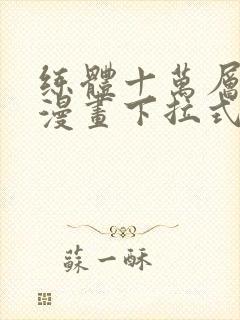 练體十萬層
漫畫下拉式
蘇一酥